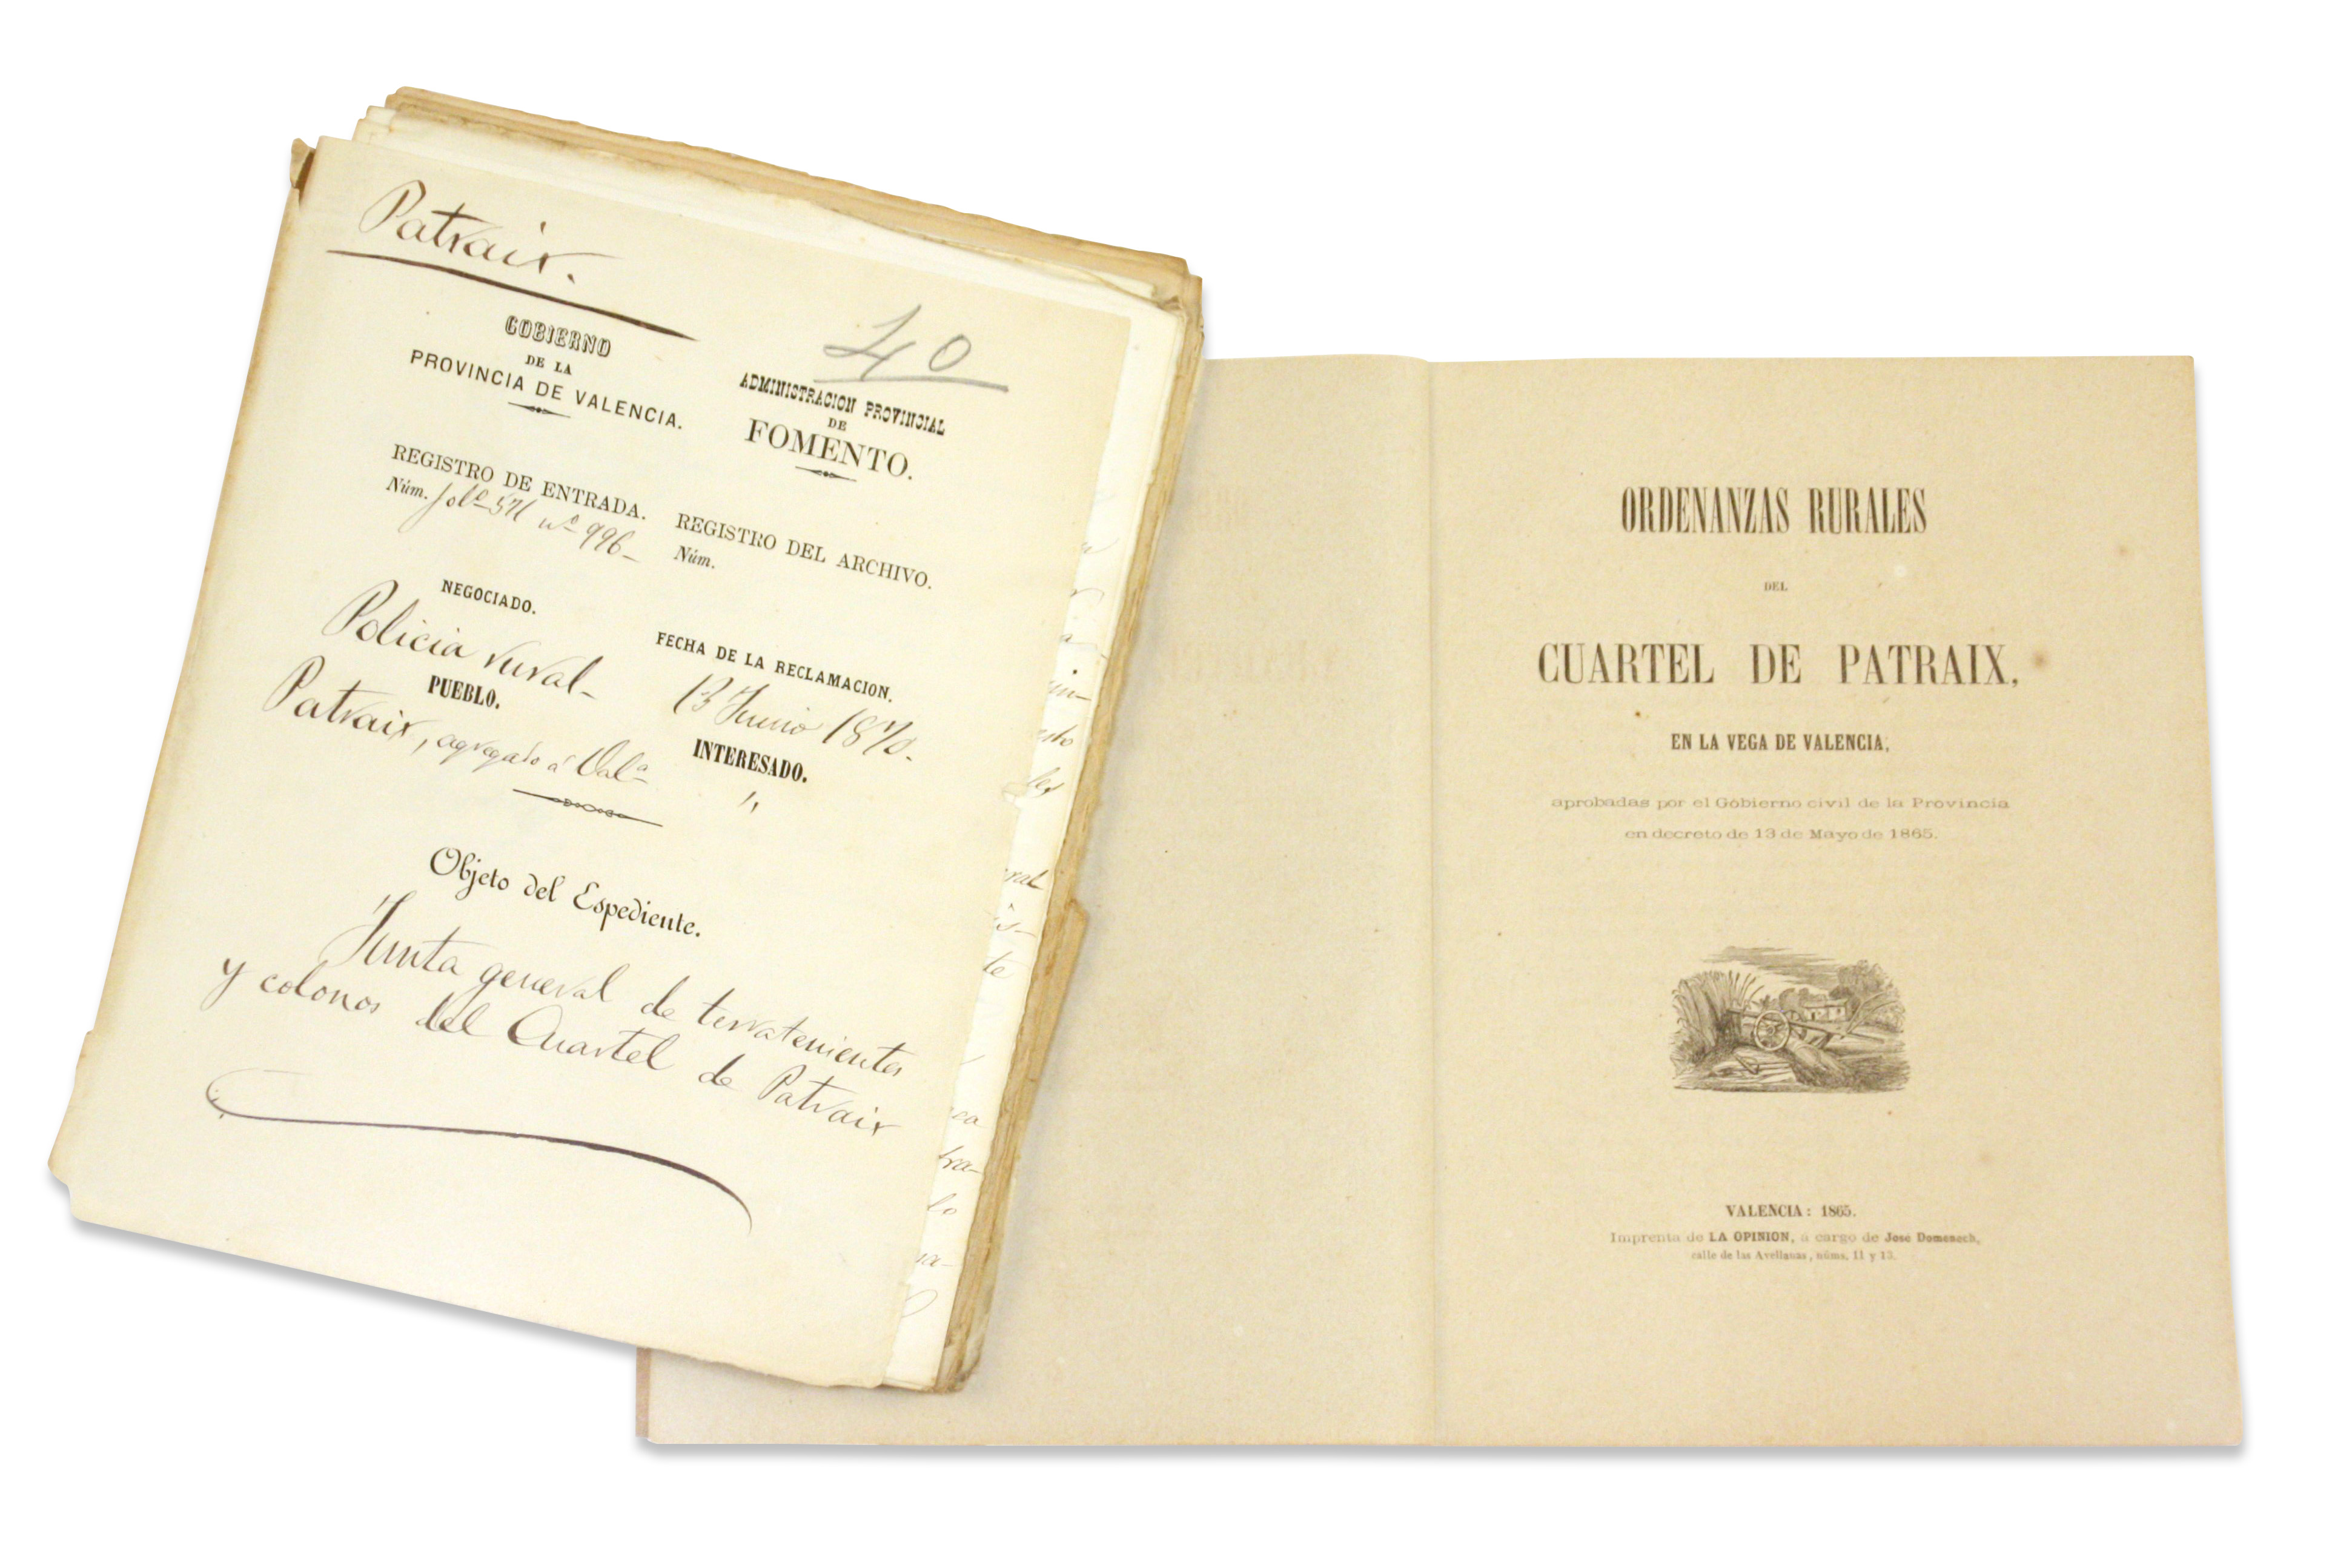 Patraix.
40
GOBIERNO
DE LA
PROVINCIA DE VALENCIA.
ADMINISTRACION PROVINCIAL
DE
FOMENTO.
REGISTRO DE ENTRADA.
Núm. fol.º 571 nº 996-
REGISTRO DEL ARCHIVO.
Núm.
NEGOCIADO.
Policia rural-
FECHA DE LA RECLAMACION.
13 Junio 1870.
PUEBLO.
Patraix, agregado á Val.ª
INTERESADO.
"
Objeto del Espediente.
Junta general de terratenientes
y colonos del Cuartel de Patraix
ORDENANZAS RURALES
DEL
CUARTEL DE PATRAIX,
EN LA VEGA DE VALENCIA,
aprobadas por el Gobierno civil de la Provincia
en decreto de 13 de Mayo de 1865.
VALENCIA: 1865.
Imprenta de LA OPINION, á cargo de José Domenech,
calle de las Avellanas, núms. 11 y 13.